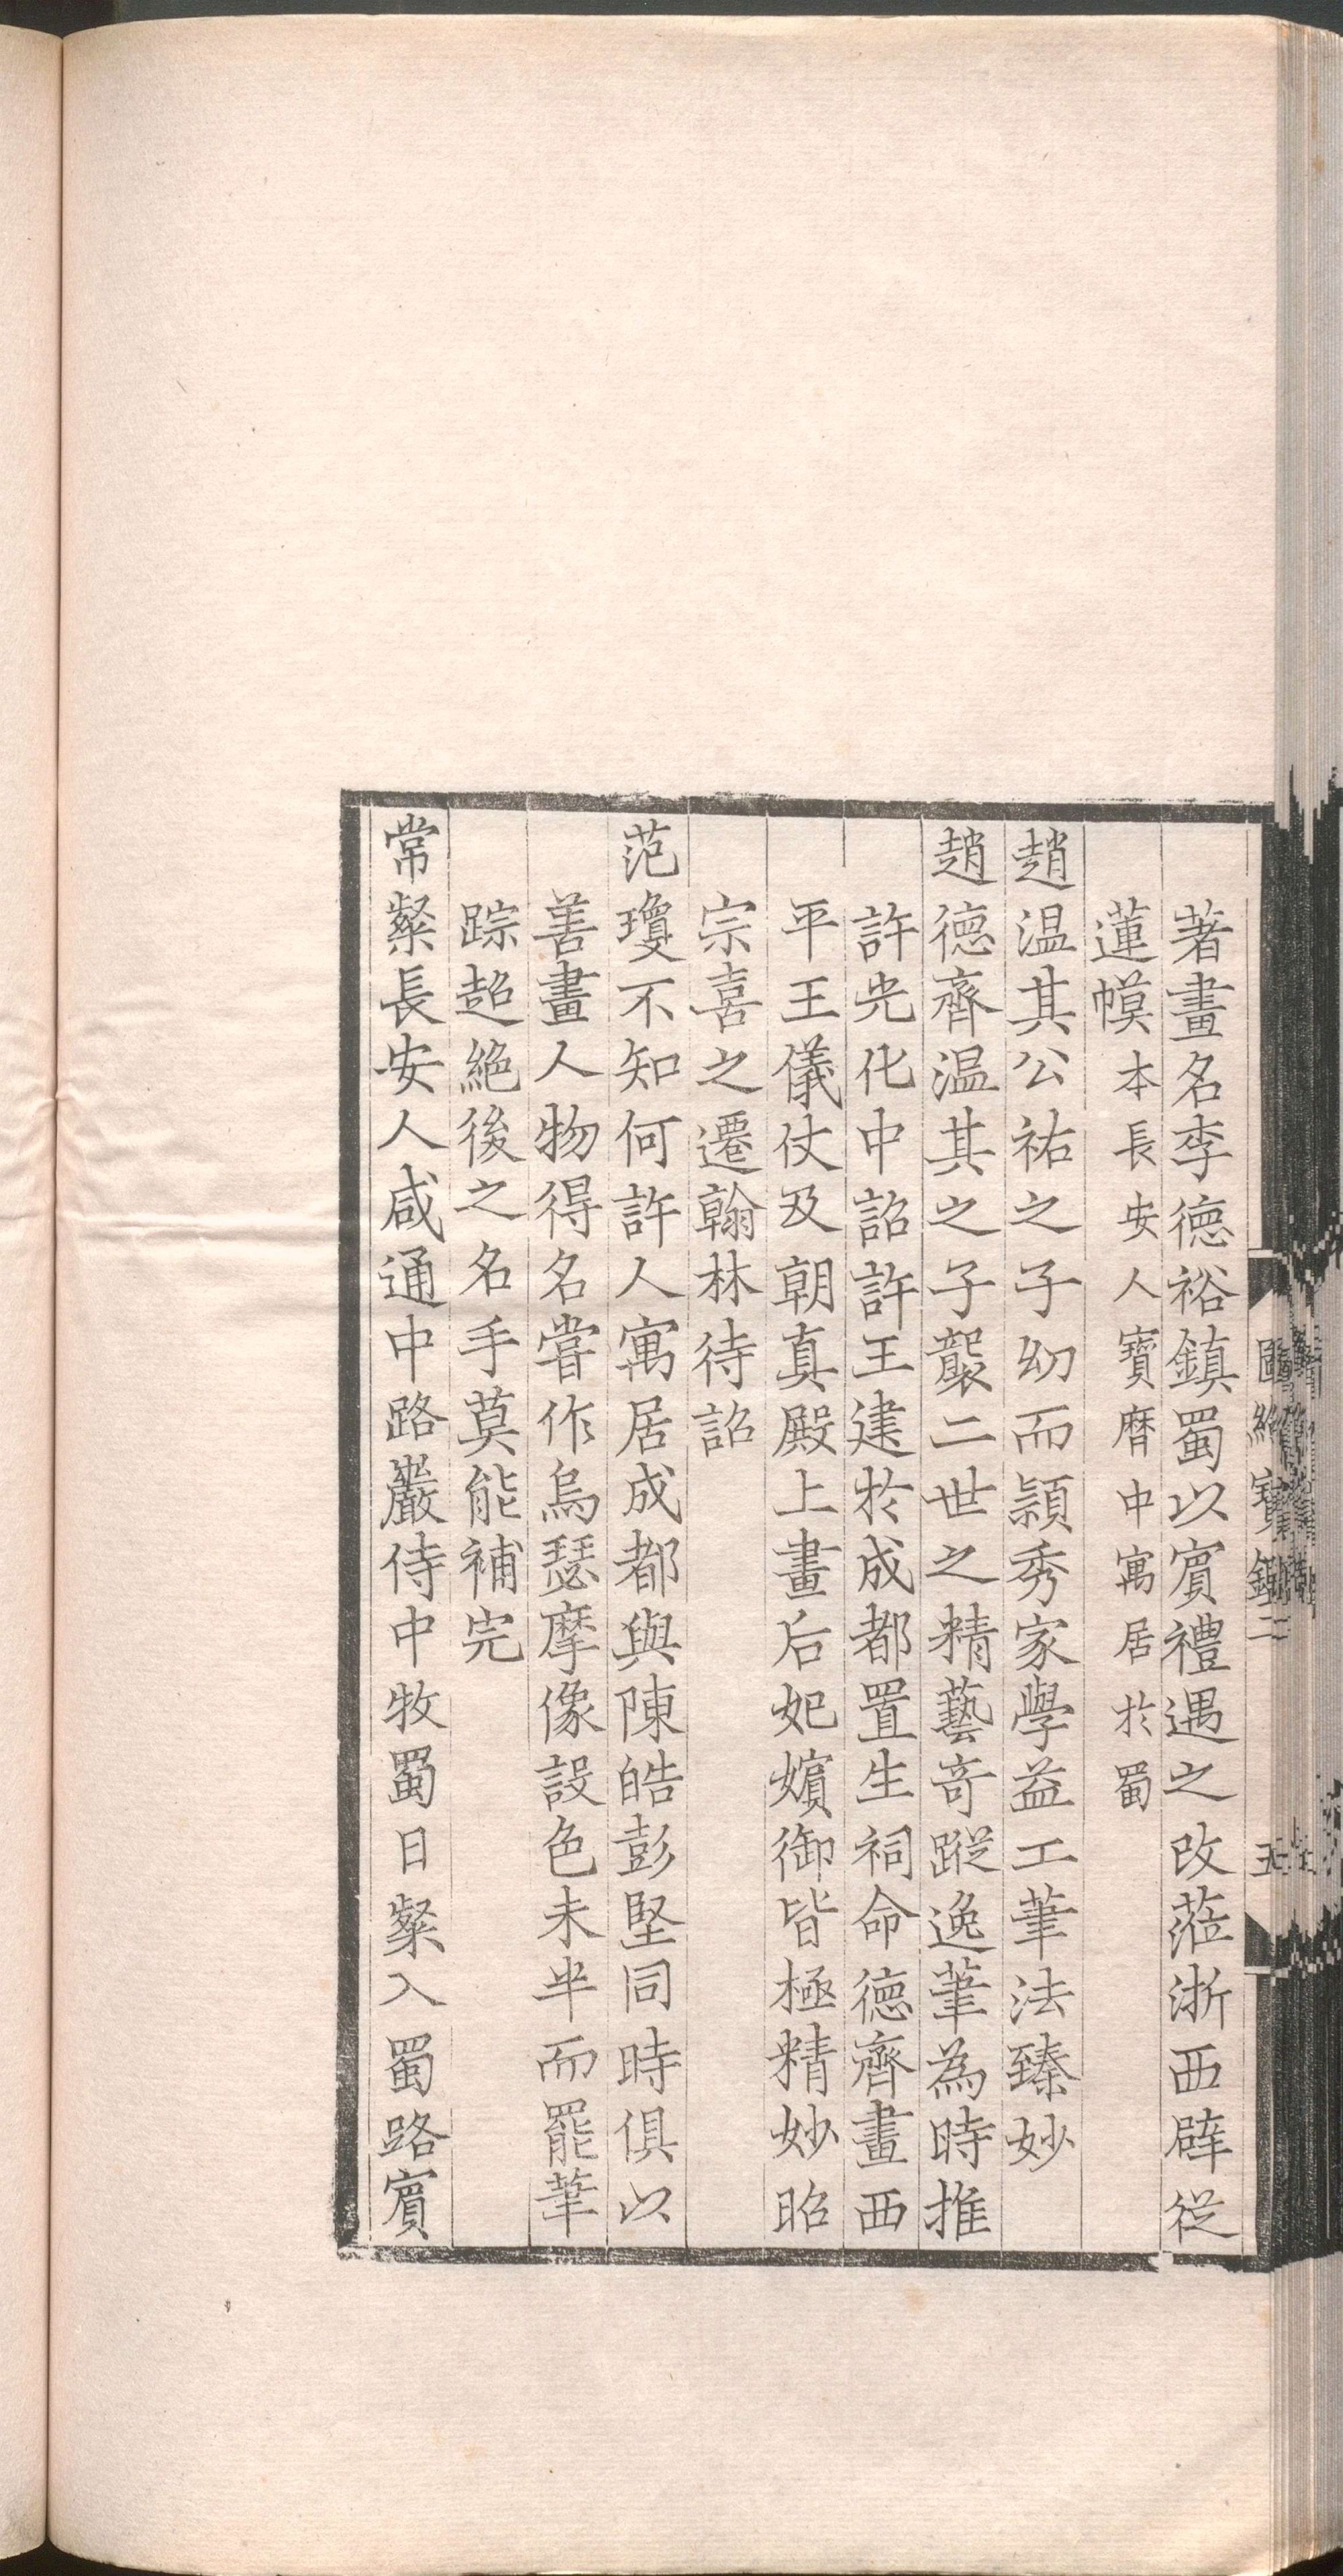 著畫名李德裕鎮蜀以賓禮遇之改蒞浙西辟從
蓮幙本長安人寶曆中寓居於蜀
趙温其公祐之子幼而頴秀家學益工筆法臻妙
趙德齊温其之子襲二世之精藝竒蹤逸筆為時推
許光化中詔許王建於成都置生祠命德齊畫西
平王儀仗及朝真殿上畫后妃嬪御皆極精妙昭
宗喜之遷翰林待詔
范瓊不知何許人寓居成都與陳皓彭堅同時俱以
善畫人物得名嘗作烏瑟摩像設色未半而罷筆
踪超絶後之名手莫能補完
常粲長安人咸通中路巖侍中牧蜀日粲入蜀路賓
圖繪寶鑑二
五